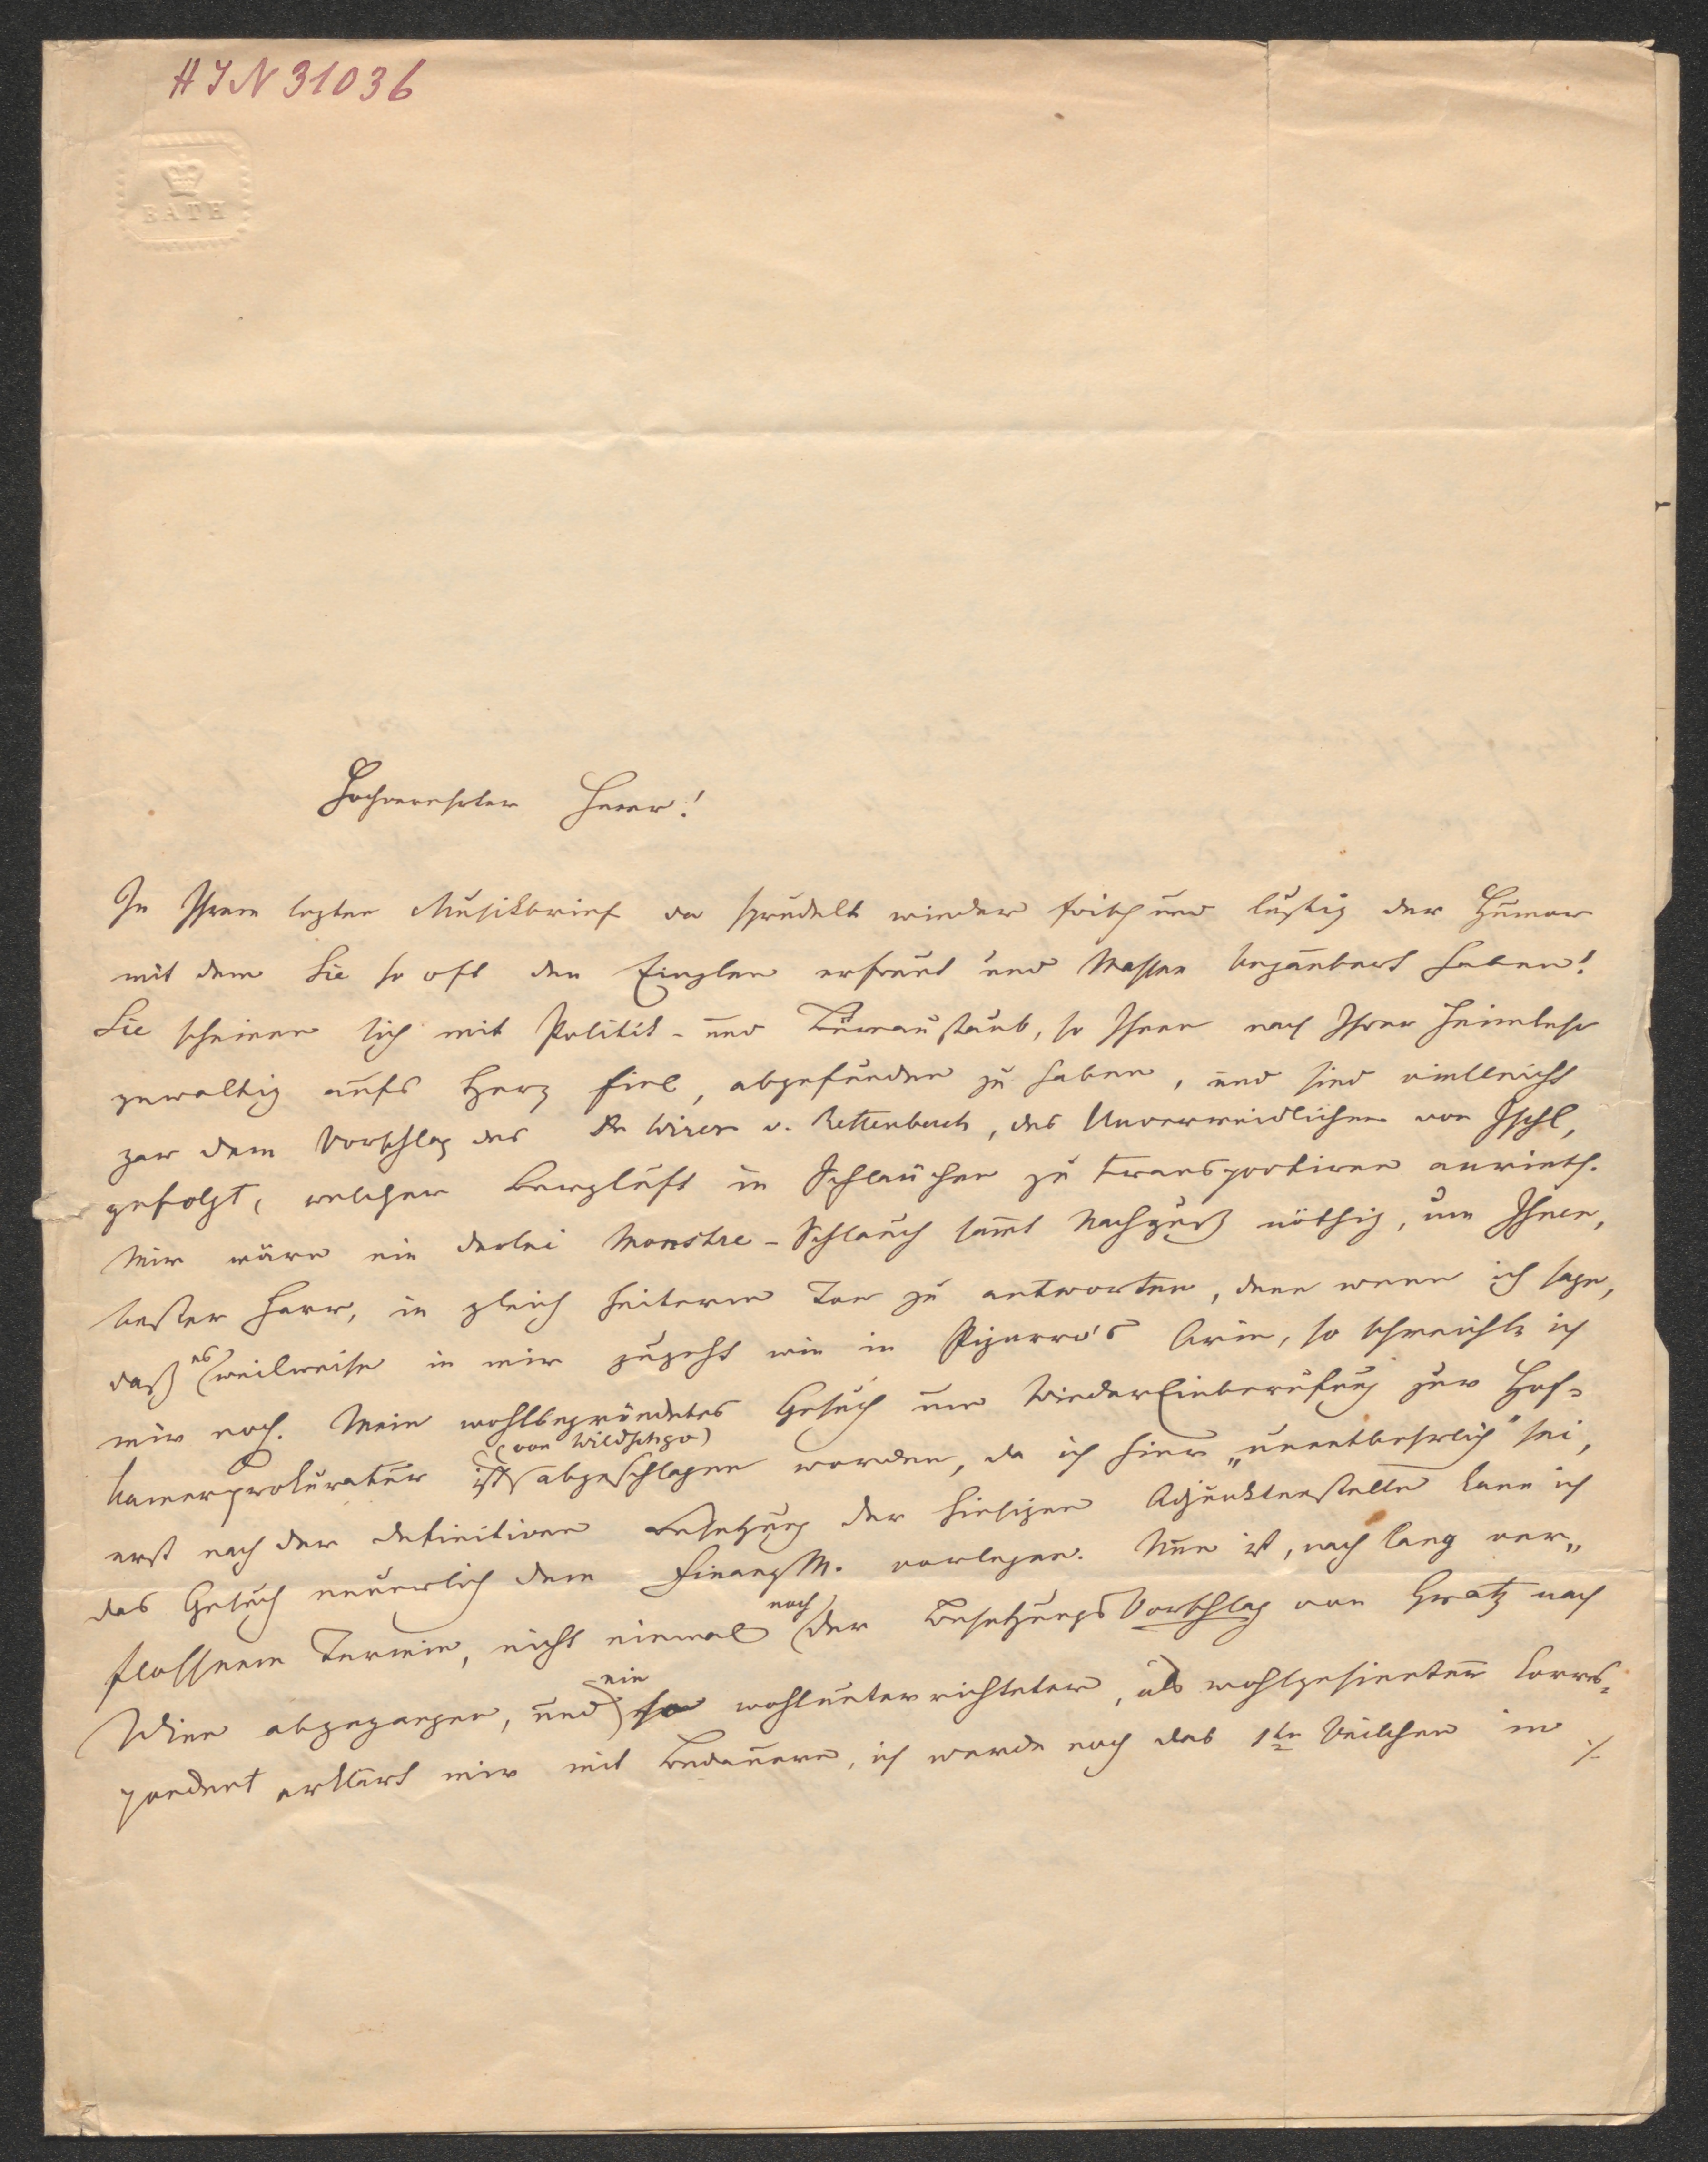 HIN 31036
BATH
Hochverehrter Herr!
In Ihrem lezten Musikbrief da sprudelt wieder frisch und lustig der Humor
mit dem Sie so oft den Einzlen erfreut und Massen bezaubert haben!
Sie scheinen sich mit Politik- und Büreaustaub, so Ihnen nach Ihrer Heimkehr
gewaltig aufs Herz fiel, abgefunden zu haben, und sind vielleicht
gar dem Vorschlag des Dr Wirer v. Rettenbach, des Unvermeidlichen von Ischl,
gefolgt, welcher Bergluft in Schläuchen zu transportiren anrieth.
Mir wäre ein derlei Monstre-Schlauch sammt Nachguß nöthig, um Ihnen,
bester Herr, in gleich heiterem Ton zu antworten, denn wenn ich sage,
daß es weilweise in mir zugeht wie in Pizarro's Arie, so schmeichle ich
mir noch. Mein wohlbegründetes Gesuch um WiederEinberufung zur Hof-
kamerprokuratur ist (von Wildschgo) abgeschlagen worden, da ich hier „unentbehrlich" sei,
erst nach der definitiven Besetzung der hiesigen Adjunktenstelle kann ich
das Gesuch neuerlich dem FinanzM. vorlegen. Nun ist, nach lang ver„
flossenem Termin, nicht einmal noch der BesetzungsVorschlag von Gratz nach
Wien abgegangen, und ein so wohlunterrichteter, als wohlgesinnter Corres-
pondent erklärt mir mit Bedauern, ich werde noch das 1te Veilchen in ./.